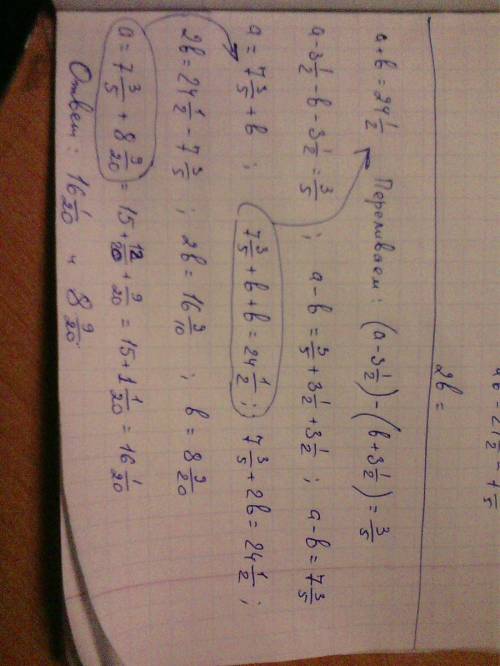 ab = 24 1/2 - 7 3/5
2b =
a+b = 24 1/2 Переливаем: (a-3 1/2)-(b+3 1/2) = 3/5
a-3 1/2-b-3 1/2 = 3/5 ; a-b = 3/5+3 1/2+3 1/2 ; a-b = 7 3/5
a = 7 3/5 + b ; 7 3/5 + b + b = 24 1/2 ; 7 3/5 + 2b = 24 1/2 ;
2b = 24 1/2 - 7 3/5 ; 2b = 16 9/10 ; b = 8 9/20
a = 7 3/5 + 8 9/20 = 15 + 12/20 + 9/20 = 15 + 1 1/20 = 16 1/20
Ответ: 16 1/20 и 8 9/20.